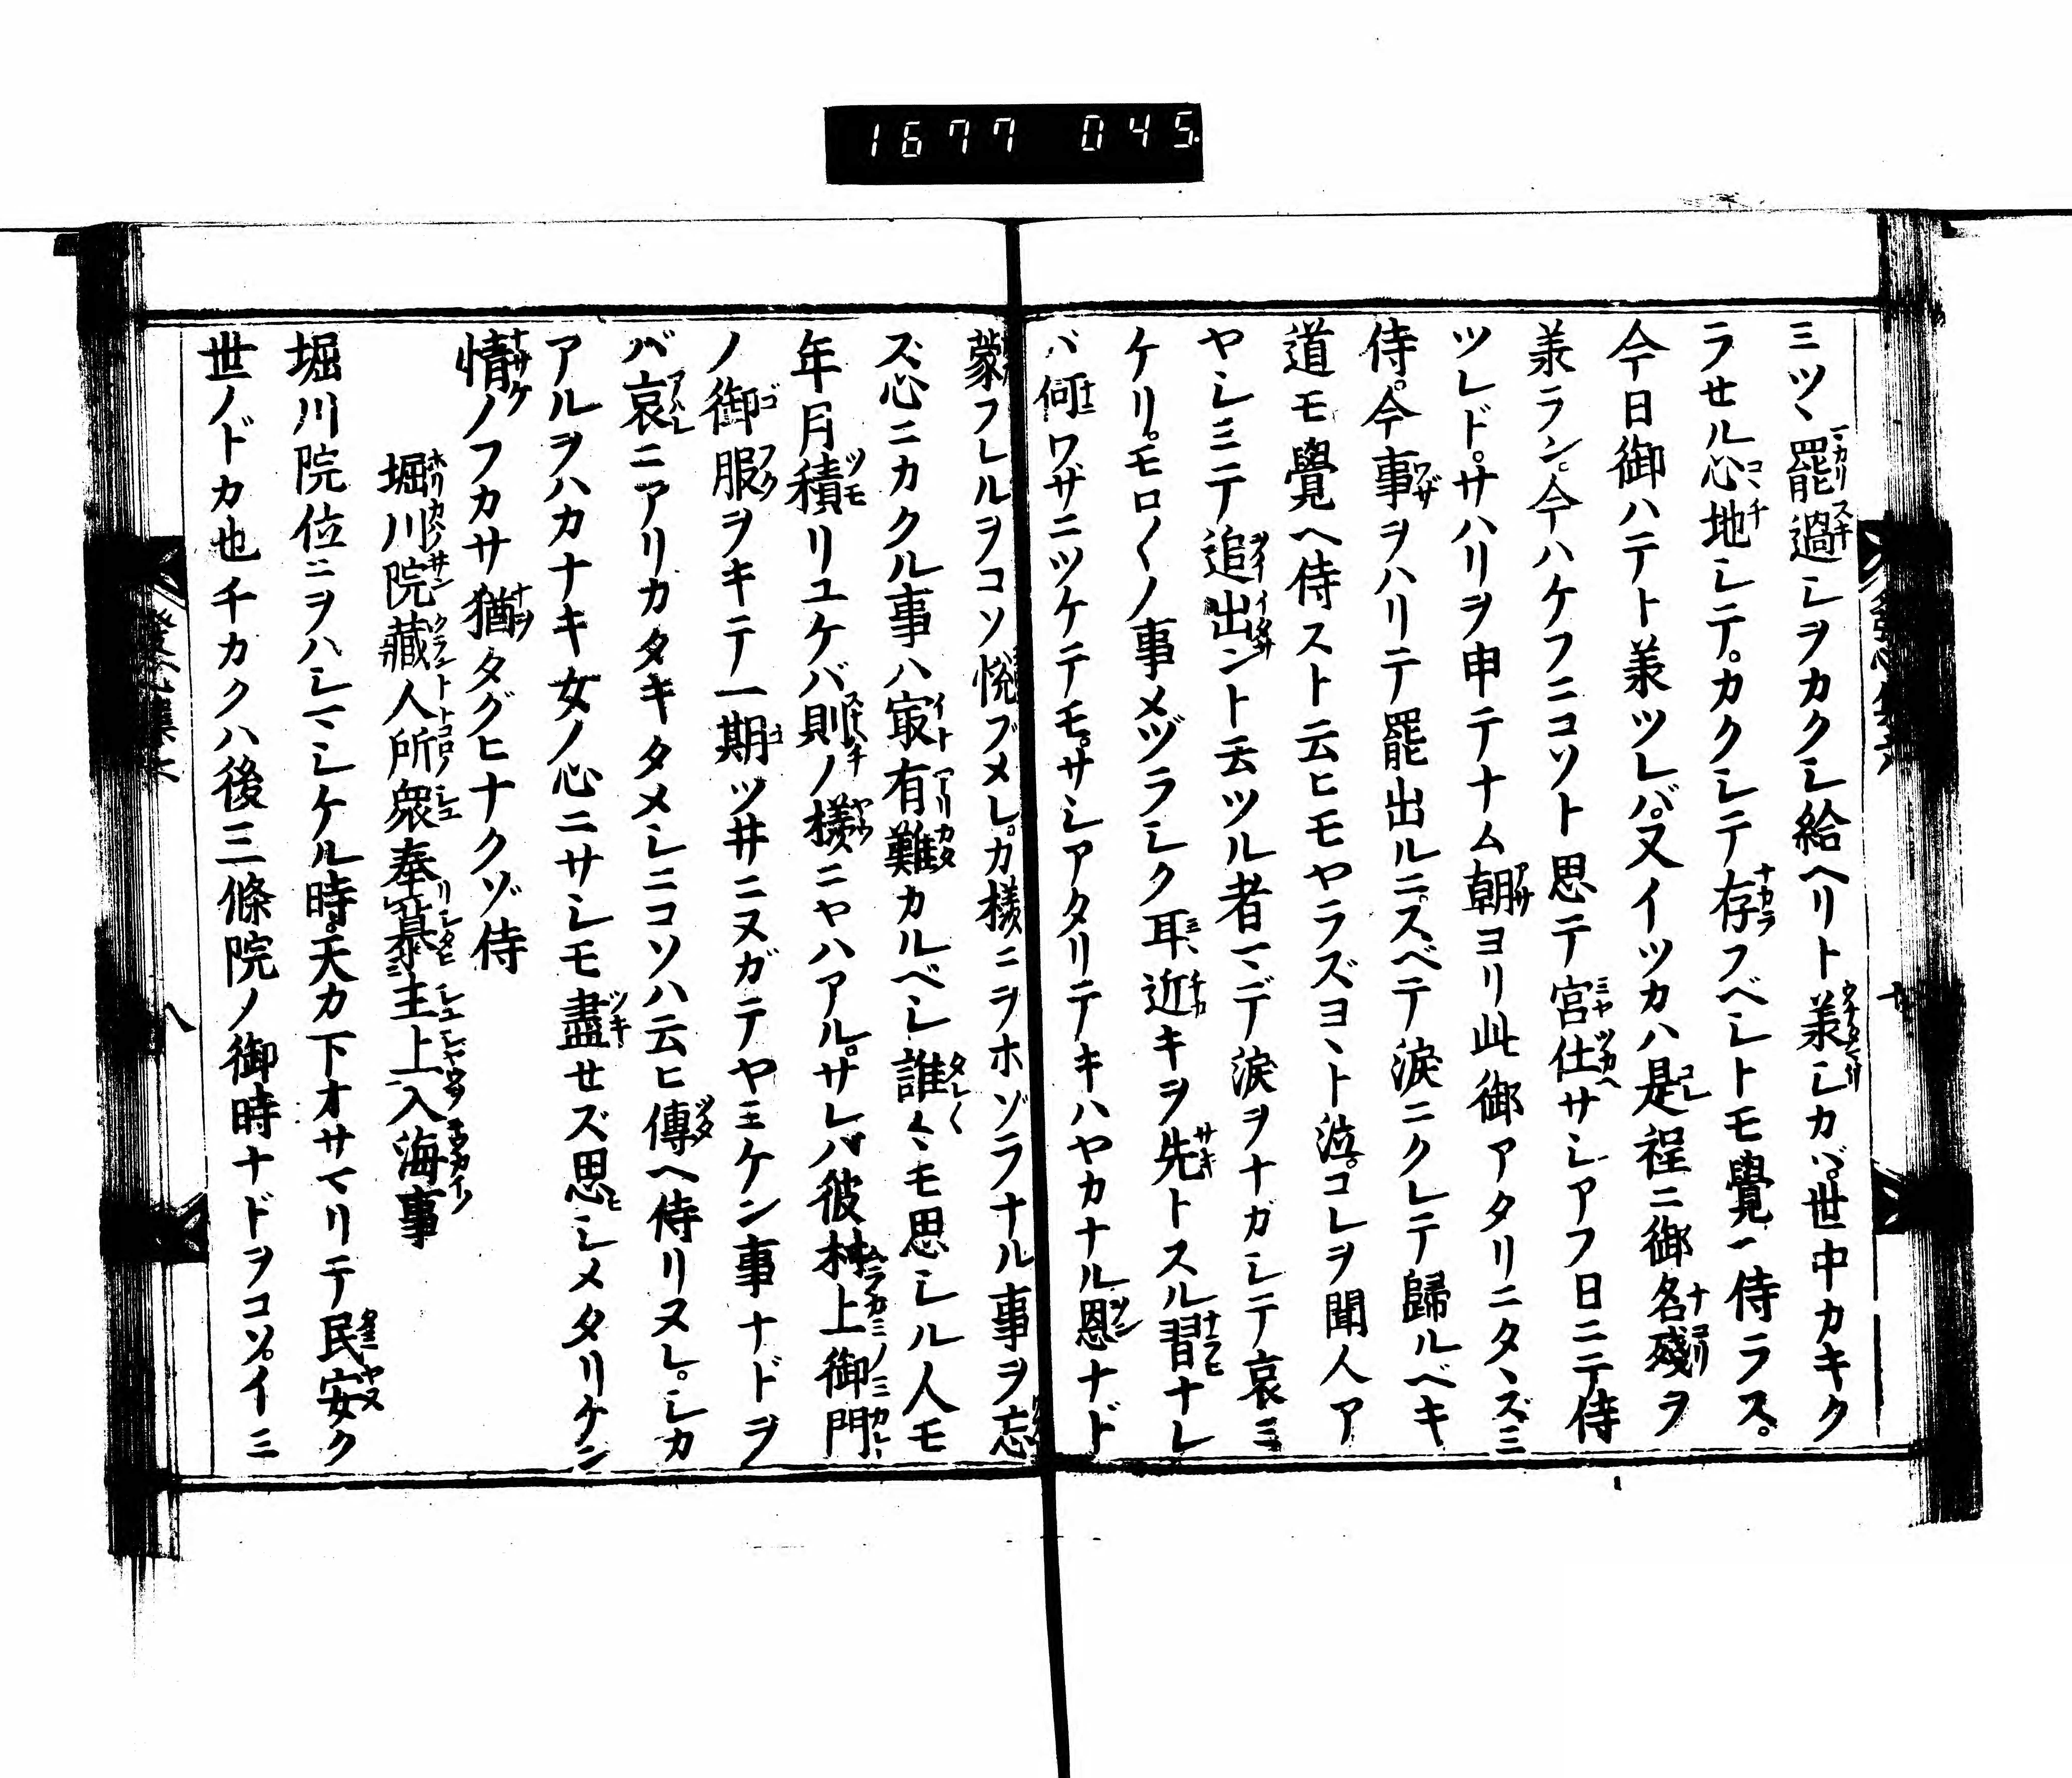 1677 045
ミツヽ罷過シヲカクシ給ヘリト羕シカバ。世中カキク
ラセル心地シテ。カクシテ存フベシトモ覺ヘ侍ラス。
今日御ハテト羕ツレバ。又イツカハ是程ニ御名殘ヲ
羕ラン。今ハケフニコソト思テ宮仕サシアフ日ニテ侍
ツレド。サハリヲ申テナム朝ヨリ此御アタリニタヽズミ
侍。今事ヲハリテ罷出ルニ。スベテ淚ニクレテ歸ルベキ
道モ覺ヘ侍ストト云ヒモヤラズヨヽト泣。コレヲ聞人ア
ヤシミテ追出ントト云ツル者マデ淚ヲナガシテ哀ミ
ケリ。モロ〱ノ事メヅラシク耳近キヲ先トスル習ナレ
バ何ワザニツケテモ。サシアタリテキハヤカナル恩ナド
蒙フレルヲコソ悅ブメレ。カ樣ニヲホゾラナル事ヲ忘
ス心ニカクル事ハ寂有難カルベシ誰〱モ思シル人モ
年月積リユケバ則ノ樣ニヤハアル。サレバ彼村上御門
ノ御服ヲキテ一期ツ井ニヌガテヤミケン事ナドヲ
バ哀ニアリカタキタメシニコソハ云ヒ傳ヘ侍リヌレ。シカ
アルヲハカナキ女ノ心ニサシモ盡セズ思シメタリケン
情ノフカサ猶タグヒナクゾ侍
堀川院藏人所衆奉慕主上入海事
堀川院位ニヲハシマシケル時。天カ下オサマリテ民安ク
世ノドカ也チカクハ後三條院ノ御時ナドヲコソ。イミ